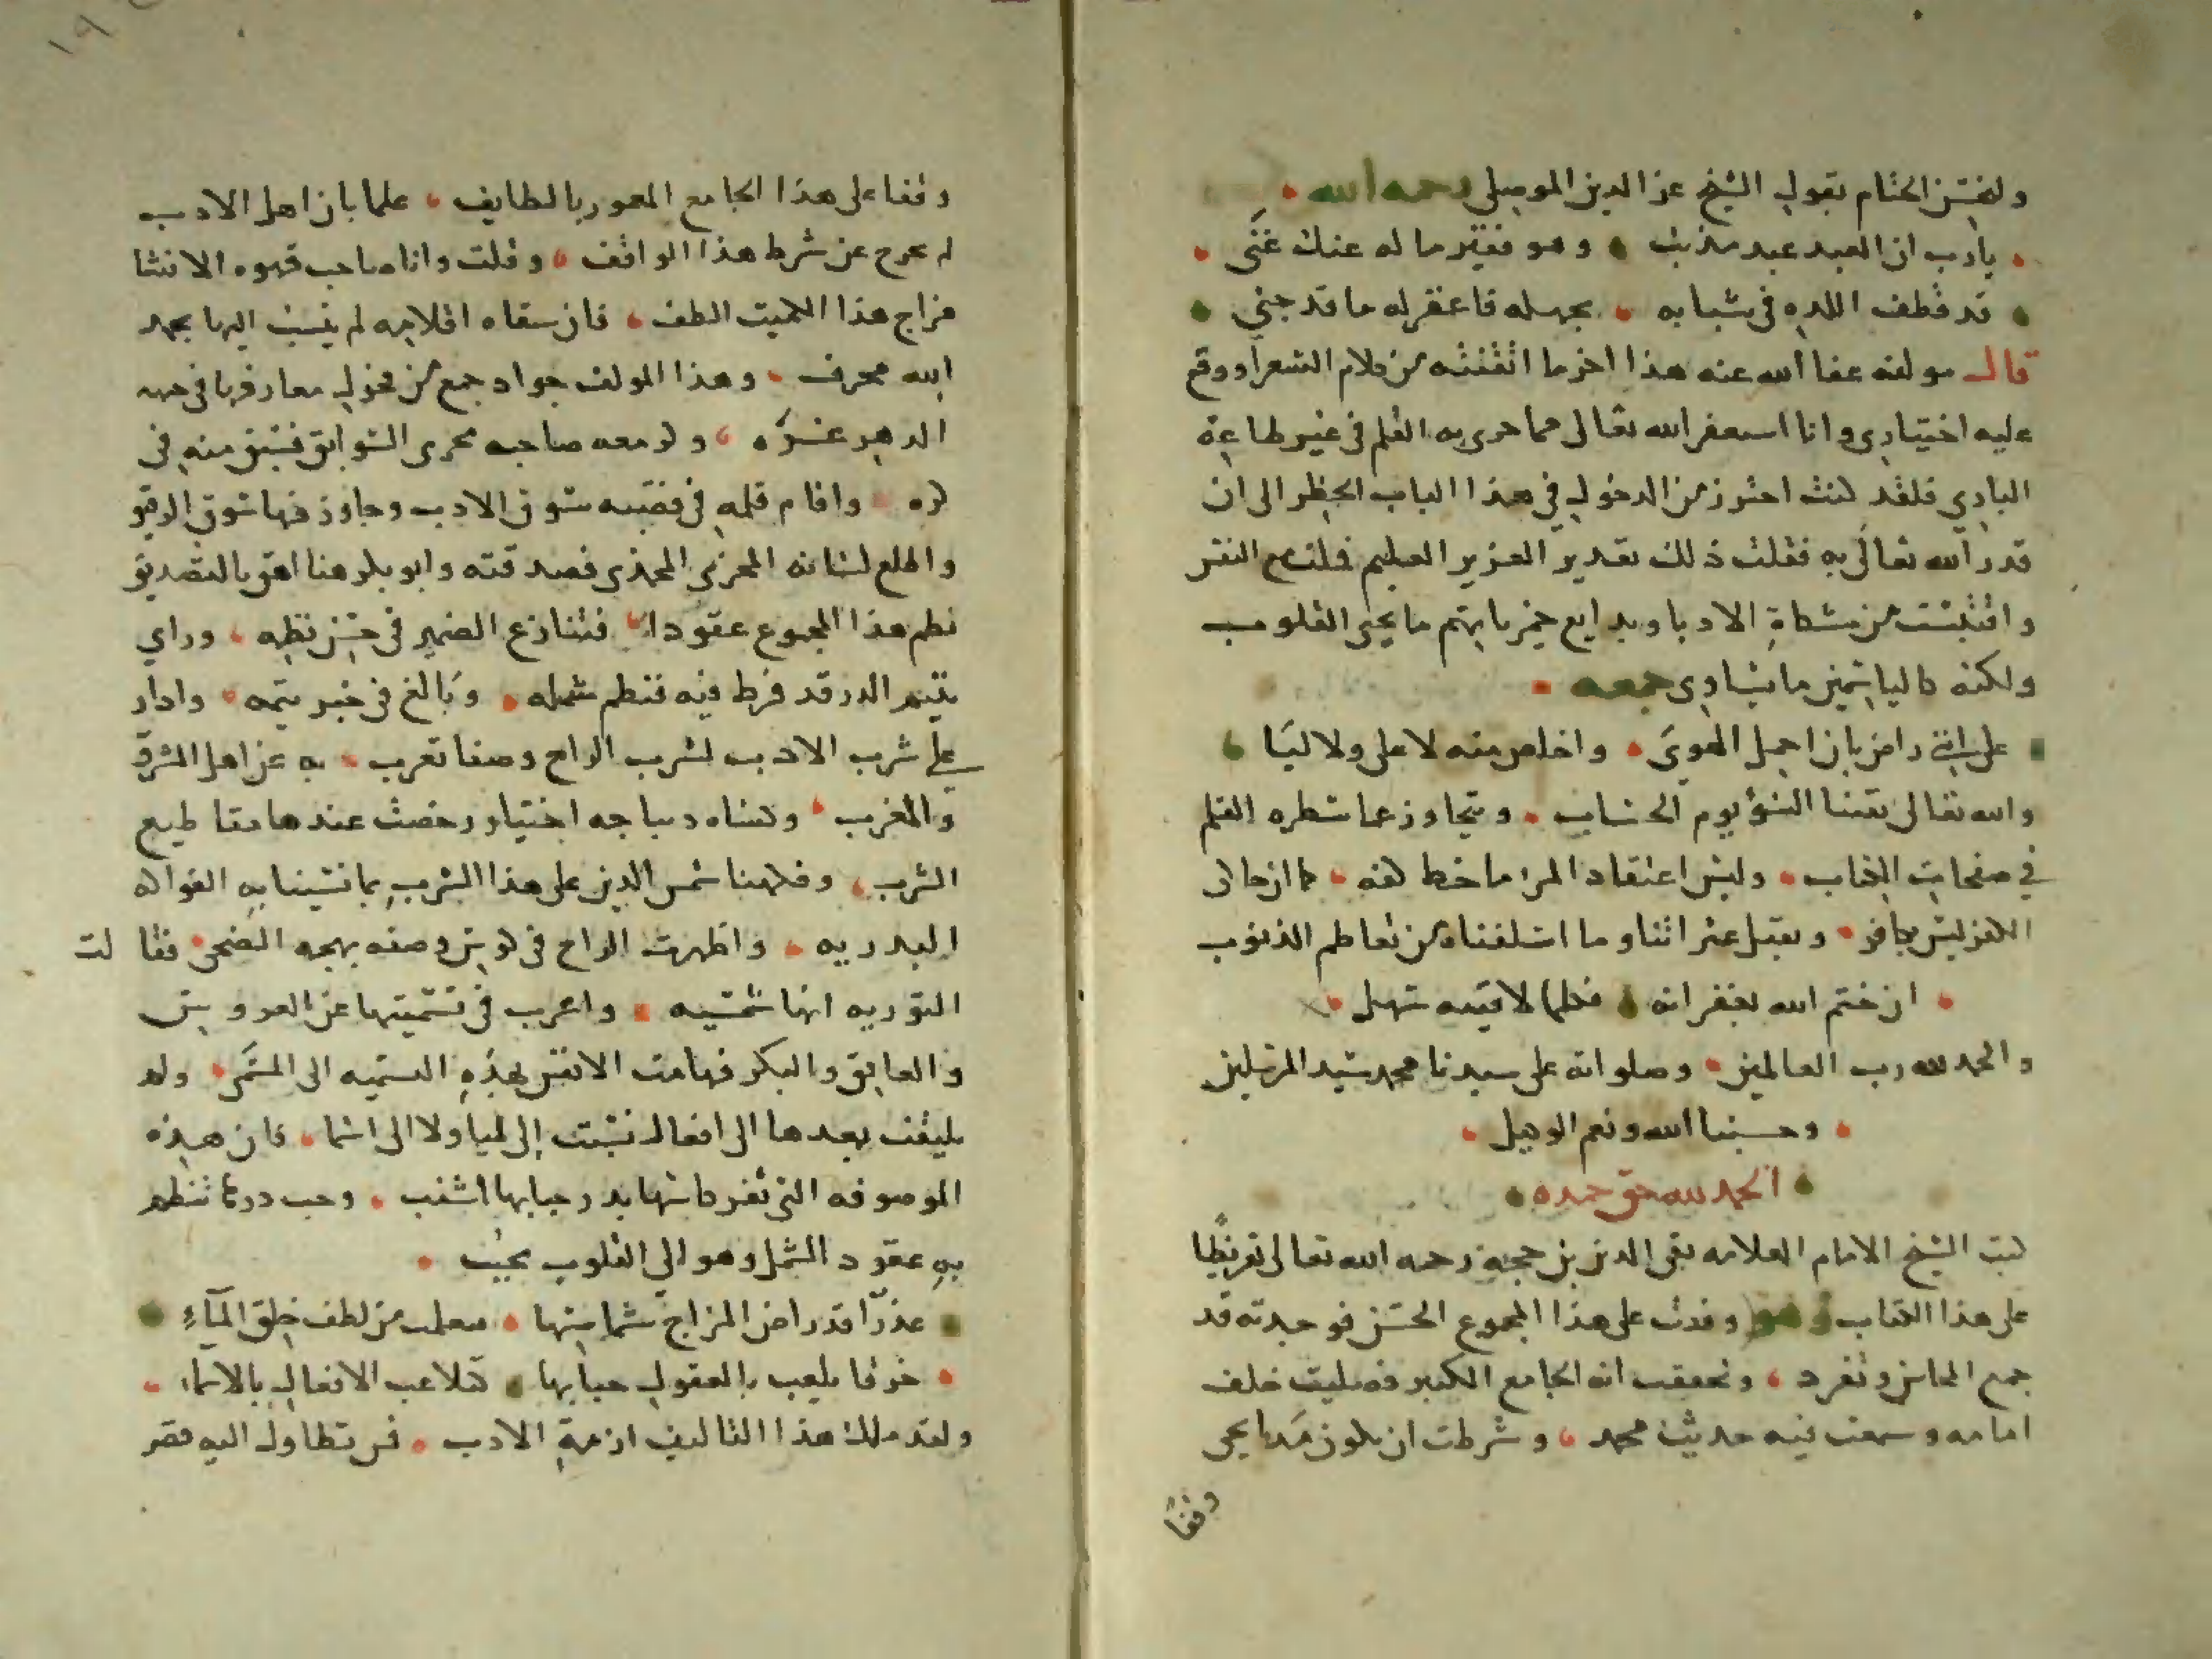 ولنختتم الختام بقول الشيخ عز الدين الموصلي رحمه الله
يا رب ان العبد عبد مذنب وهو فقير ما له عنك غنى
قد قطف اللذه في شبابه بجهله فاغفر له ما قد جني
قال مولفه عفا الله عنه هذا اخر ما انتقيته من كلام الشعرا ووقع
عليه اختياري وانا استغفر الله تعالى مما جرى به القلم في غير طاعة
الباري فلقد كنت احترز من الدخول في هذا الباب الخطر الى ان
قدر الله تعالى به فقلت ذلك تقدير العزيز العليم فلت مع النفر
واقتبست من مشكاة الادبا وبدايع خمرياتهم ما يحيى القلوب
ولكنه كالياسمين ما يساوى جمعه
على انني راض بان احمل الهوى واخلص منه لا علي ولا ليا
والله تعالى يقينا السؤ يوم الحساب ويتجاوز عما سطره القلم
في صفحات الكتاب وليس اعتقاد المرء ما خط كفه كما ان حاكى
الكفر ليس بكافر ويقبل عثراتنا وما اسلفناه من تعاظم الذنوب
ان ختم الله بغفرانه فكلما لاقيته سهل
والحمد لله رب العالمين وصلواته على سيدنا محمد سيد المرسلين
وحسبنا الله ونعم الوكيل
الحمد لله حق حمده
كتب الشيخ الامام العلامه تقى الدين بن حجة رحمه الله تعالى تقريظا
على هذا الكتاب وهو وقفت على هذا المجموع الحسن فوجدته قد
جمع المحاسن وتفرد وتحققت انه الجامع الكبير فصليت خلف
امامه وسمعت فيه حديث محمد وشرطت ان يكون مدايحى
وقفا
وقفا على هذا الجامع المعمور بالطايف علما بان اهل الادب
لم تخرج عن شرط هذا الواقف وقلت وانا صاحب قهوه الانشا
مزاج هذا الكميت الطف فان سقاه اقلامه لم ينسب اليها بحمد
الله محرف وهذا المولف جواد جمع من فحول معارفها في جبهه
الدهر غره وكر معه صاحبه مجرى السوابق فسبق منه في
كره واقام قلمه في قصبه سوق الادب وجاوز فيها سوق الرقيق
واطلع لسانه المحمدى فصدقته وابو بكر هنا احق بالتصديق
نظم هذا المجموع عقودا فتنازع الضمير في حسن نظمه وراي
يتيم الدر قد فرط فيه فنظم شمله وبالغ في جبر يتمه وادار
على شرب الادب لشرب الراح وصفا تعرب به عن اهل المشرق
والمغرب وكساه ديباجه اختيار رخصت عندها مقاطيع
الشرب وفكهنا شمس الدين على هذا الشرب بما نسينا به الفواكه
البدريه واظهرت الراح في كؤس وصفه بهجه الضحى فقالت
التوريه انها شمسيه واعرب في تسميتها عن العروس
والعاتق والبكر فهامت الانفس بهذه التسميه الى المسمى ولم
يلتفت بعدها الى افعال نسبت إلى لميا ولا الى اسما فان هذه
الموصوفه التي ثغر كاسها بدر حبابها اشنب وحب دررها تنظم
به عقود الشمل وهو الى القلوب محبب
عذرا قد راض المزاج شماسها فتعلمت من لطف خلق المآء
خرقا يلعب بالعقول حبابها كتلاعب الافعال بالاسماء
ولقد ملك هذا التاليف ازمة الادب فمن تطاول اليه قصر